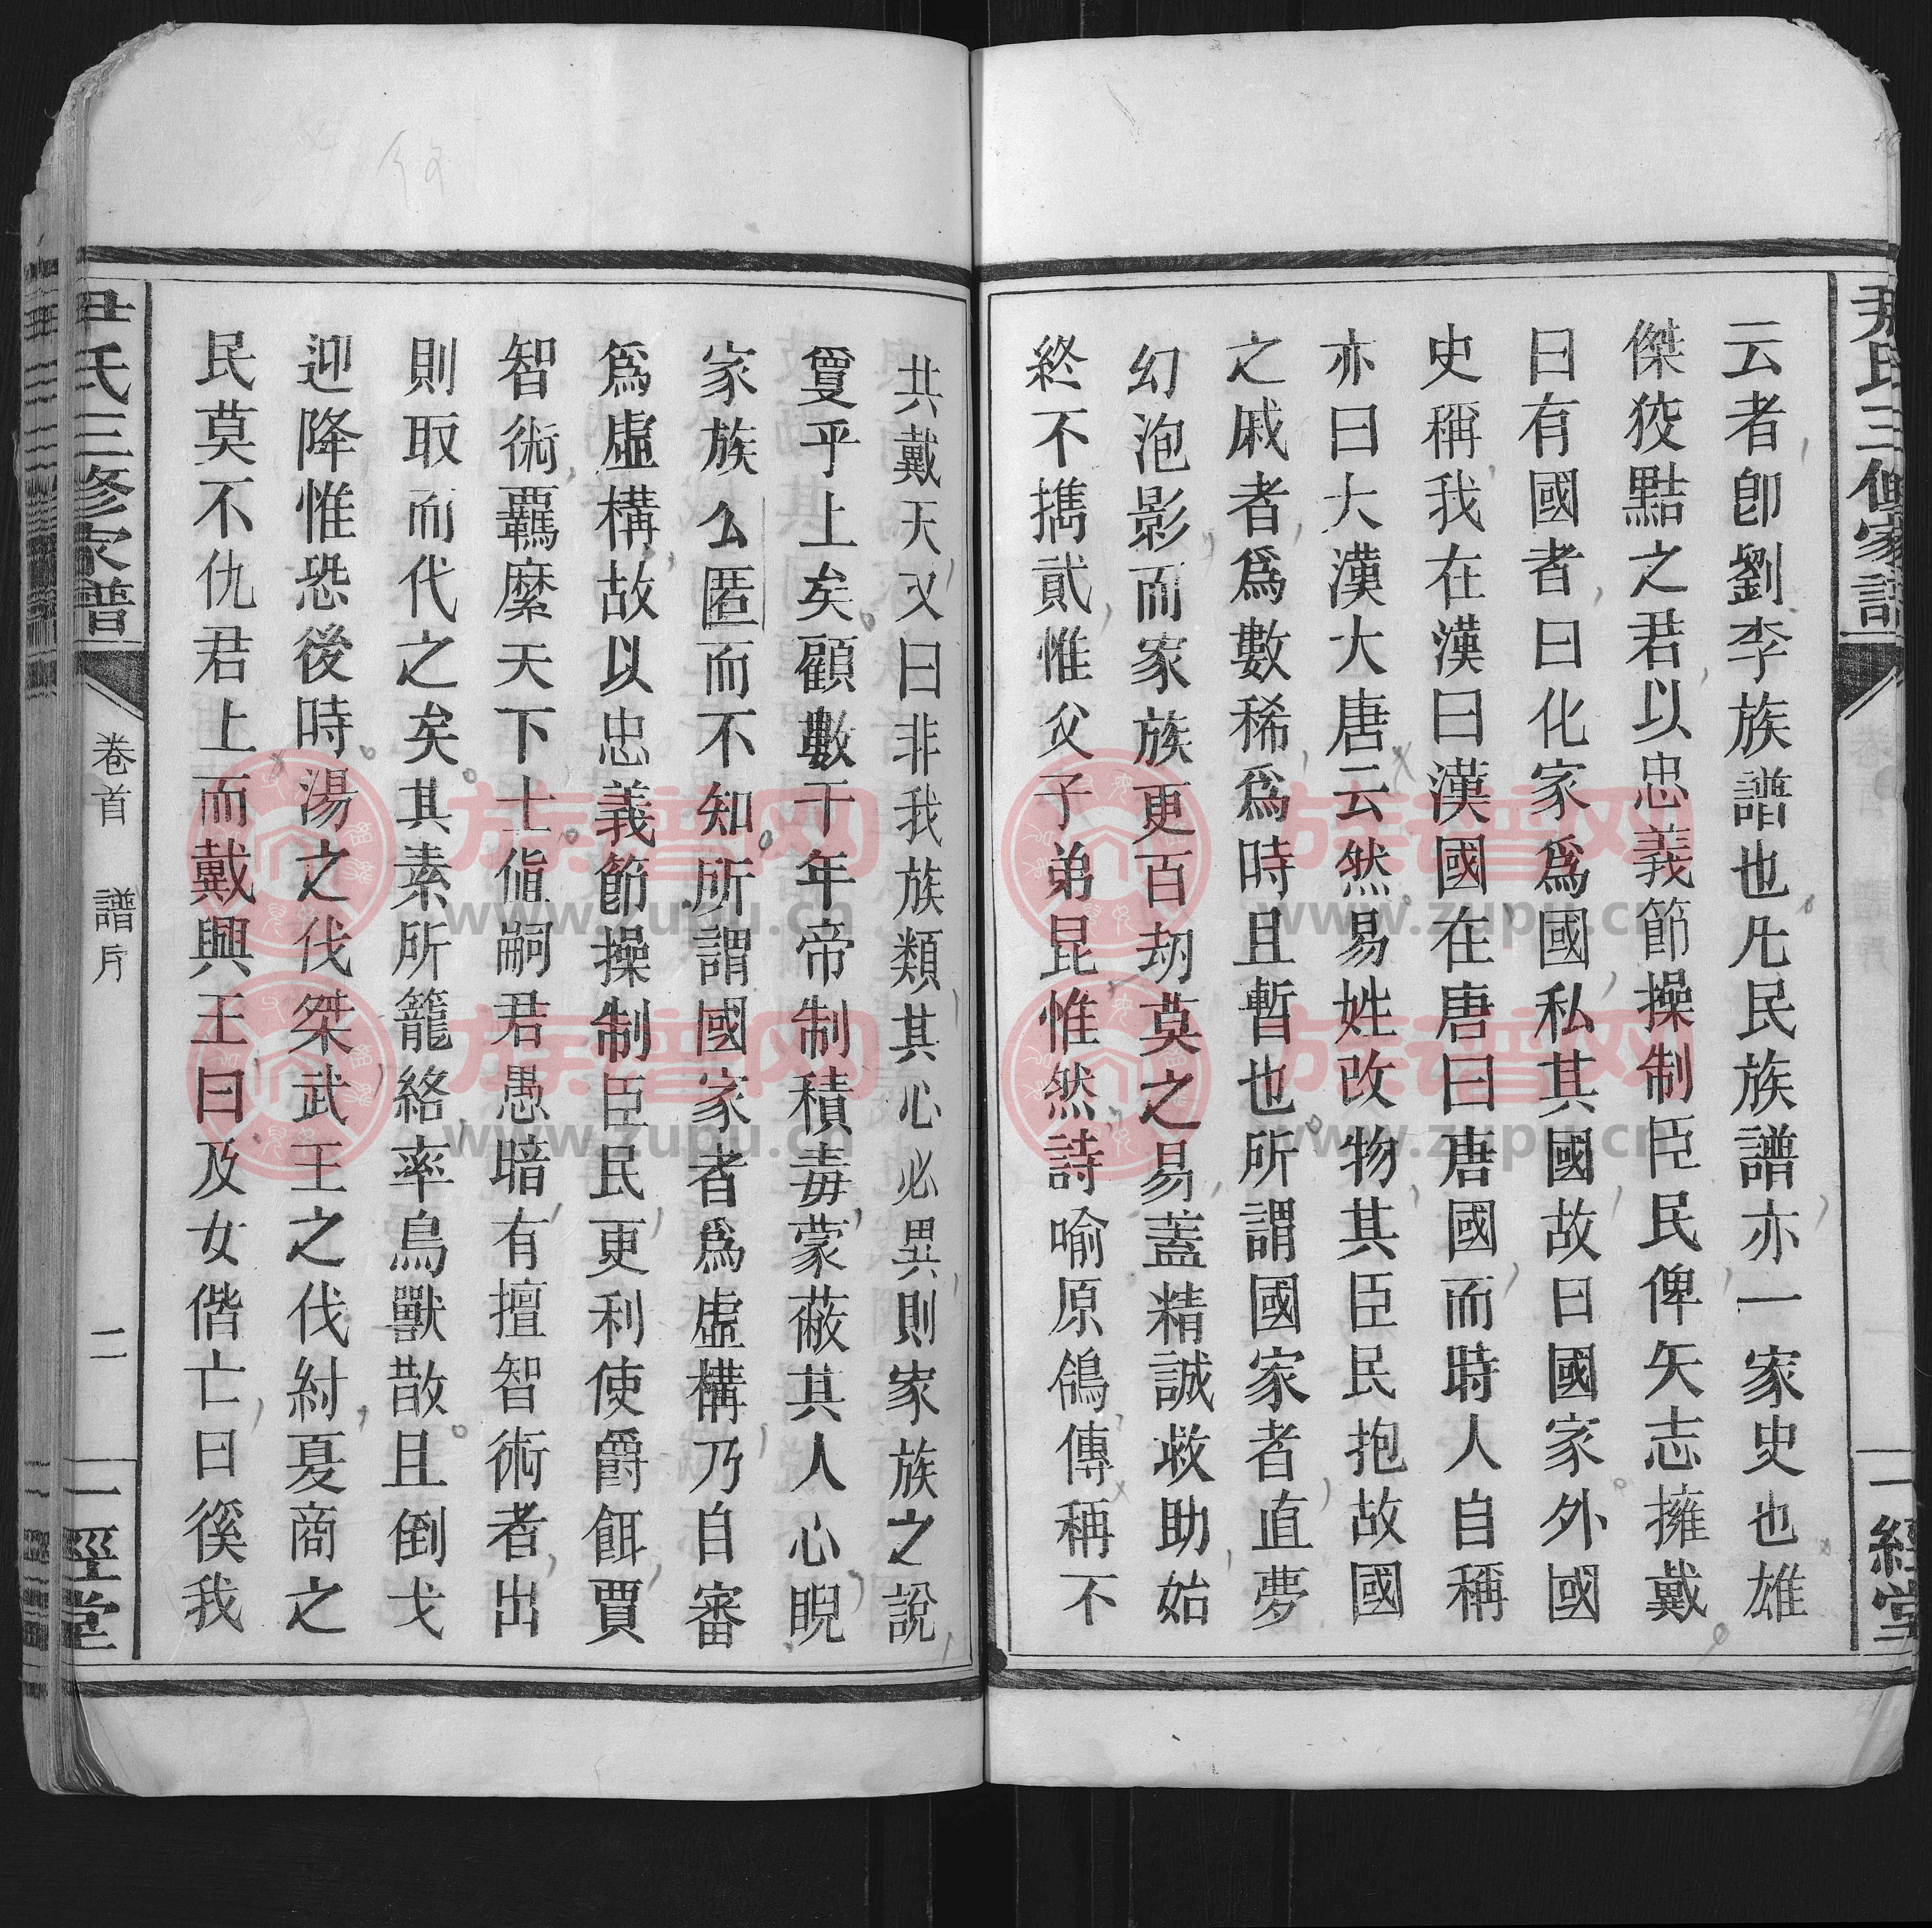 尹氏三修家譜
一經堂
云者卽劉李族譜也凡民族譜亦一家史也雄
傑狡黠之君以忠義節操制臣民俾矢志擁戴
曰有國者曰化家爲國私其國故曰國家外國
史稱我在漢曰漢國在唐曰唐國而時人自稱
亦曰大漢大唐云然易姓改物其臣民抱故國
之戚者爲數稀爲時且暫也所謂國家者直夢
幻泡影而家族更百劫莫之易蓋精誠救助始
終不攜貳惟父子弟昆惟然詩喻原鴒傳稱不
共戴天又曰非我族類其心必異則家族之說
敻乎上矣顧數千年帝制積毒蒙蔽其人心睨
家族么匿而不知所謂國家者爲虛構乃自審
爲虛構故以忠義節操制臣民更利使爵餌賈
智術羈縻天下士偱嗣君愚暗有擅智術者出
則取而代之矣其素所籠絡率鳥獸散且倒戈
迎降惟恐後時湯之伐桀武王之伐紂夏商之
民莫不仇君上而戴興王曰及女偕亡曰徯我
尹氏三修家譜
卷首 譜序
二
一經堂
族譜网
www.zupu.cn
族譜网
www.zupu.cn
族譜网
www.zupu.cn
族譜网
www.zupu.cn